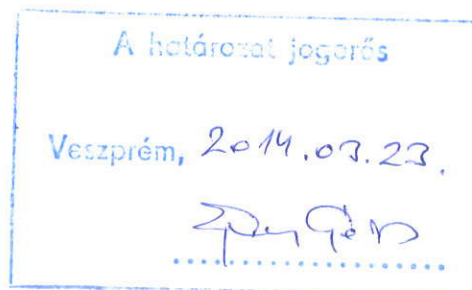 A határozat jogerős
Veszprém, 2014.03.23.